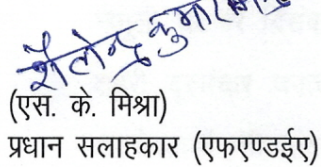 शैलेन्द्र कुमार
(एस. के. मिश्रा)
प्रधान सलाहकार (एफएण्डईए)